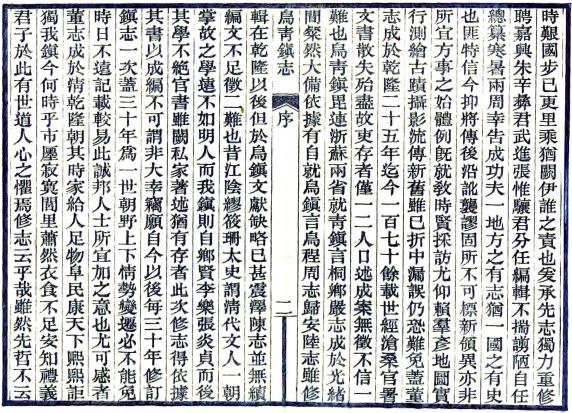 時艱國步已更里乘猶闕伊誰之責也爰承先志獨力重修
聘嘉興朱辛彝君武進張惟驤君分任編輯不揣謭陋自任
總纂寒暑兩周幸告成功夫一地方之有志猶一國之有史
也匪特信今抑將傳後沿訛襲謬固所不可標新領異亦非
所宜方事之始體例旣就敎時賢採訪尤仰賴羣彥地圖實
行測繪古蹟攝影流傳新舊雖已折中漏誤仍恐難免蓋董
志成於乾隆二十五年迄今一百七十餘載世經滄桑官書
文書散失殆盡故吏存者僅一二人口述成案無徵不信一
難也烏靑鎭毘連浙蘇兩省就靑鎭言桐鄉嚴志成於光緖
間粲然大備依據有自就烏鎭言烏程周志歸安陸志雖修
烏靑鎭志
序
二
輯在乾隆以後但於烏鎭文獻缺略已甚震澤陳志並無續
編文不足徵二難也昔江陰繆筱珊太史謂清代文人一朝
掌故之學遠不如明人而我鎭則自鄉賢李樂張炎貞而後
其學不絕官書雖闕私家著述猶有存者此次修志得依據
其書以成編不可謂非大幸竊願自今以後每三十年修訂
鎭志一次蓋三十年爲一世朝野上下情勢變遷必不能免
時日不遠記載較易此誠邦人士所宜加之意也尤可感者
董志成於清乾隆朝其時家給人足物阜民康天下熙熙詎
獨我鎭今何時乎市廛寂寞閭里蕭然衣食不足安知禮義
君子於此有世道人心之懼焉修志云乎哉雖然先哲不云